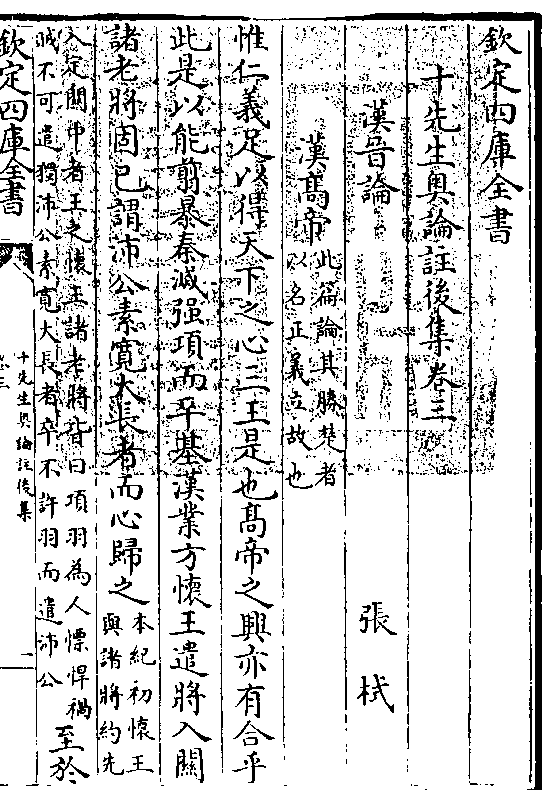 欽定四庫全書
十先生奧論註後集卷三
漢晉論
張栻
漢髙帝
此篇論其勝楚者
以名正義立故也
惟仁義足以得天下之心三王是也髙帝之興亦有合乎
此是以能翦暴秦滅强項而平基漢業方懷王遣將入關
諸老將固已謂沛公素寛大長者而心歸之
本紀初懷王
與諸將約先
入定關中者王之懷王諸老將皆曰項羽為人慓悍禍
賊不可遣獨沛公素寛大長者卒不許羽而遣沛公
至於
欽定四庫全書
十先生奧論註後集
卷三
一